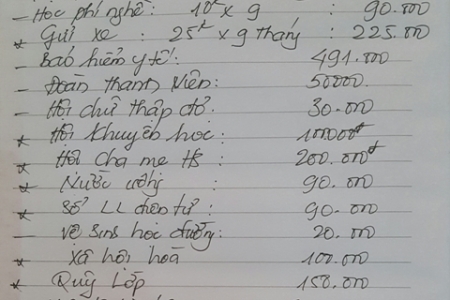 - Học phí nghề: 10k x 9 : 90.000
* Gửi xe : 25k x 9 tháng : 225.000
- Bảo hiểm y tế: 491.000
- Đoàn thanh niên: 50000.
- Hội chữ thập đỏ: 30.000
* Hội Khuyến học: 100000đ
* Hội Cha mẹ HS: 200.000đ
* Nước uống : 90.000
* Sổ LL điện tử : 90.000
- Vệ sinh học đường: 20.000
* Xã hội hoá : 100.000
* Quỹ Lớp : 150.000